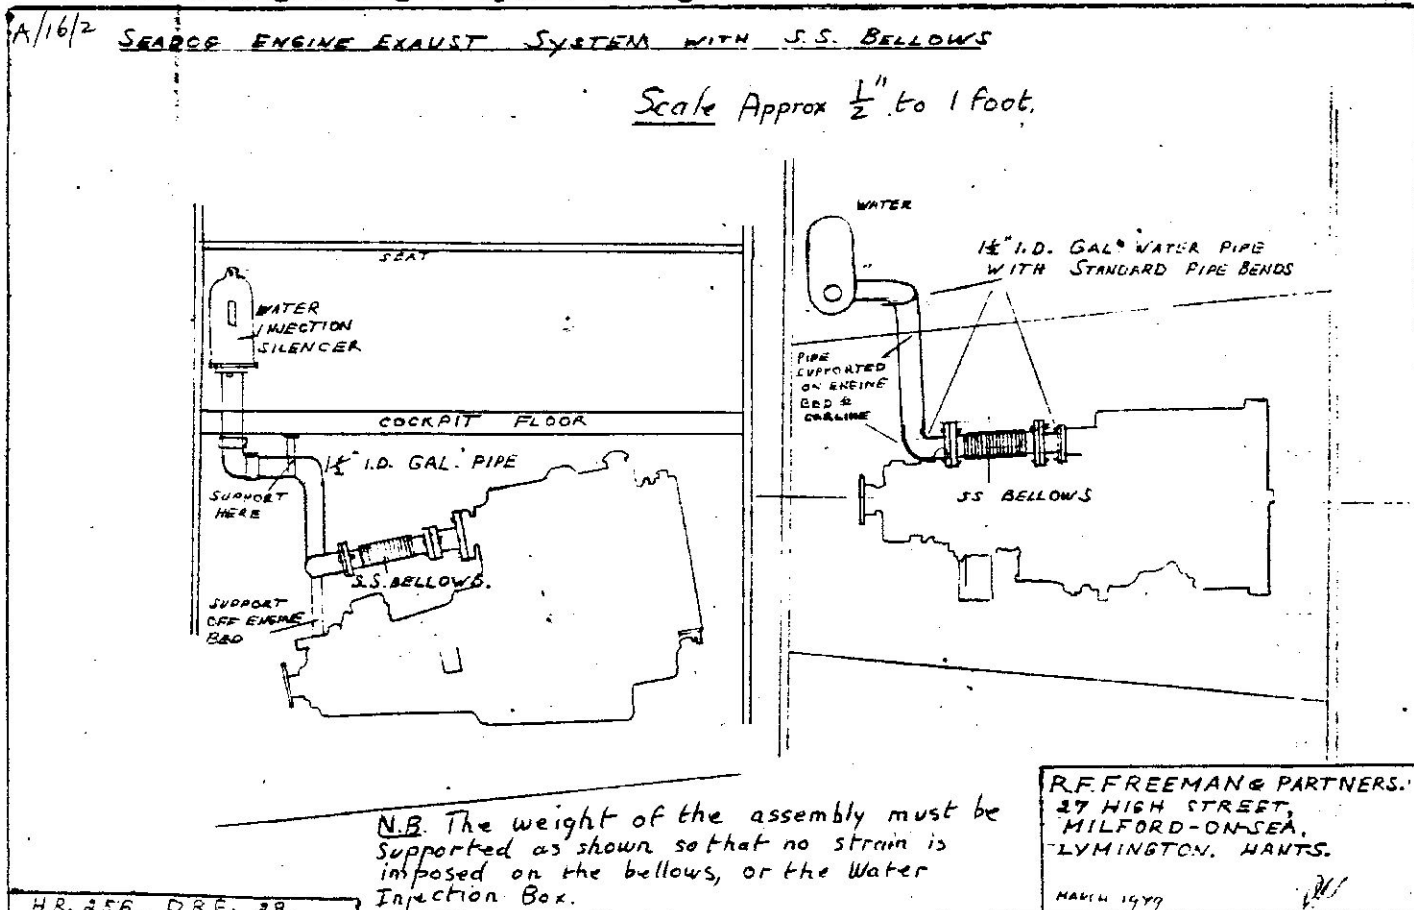 A/16/2 SEADOG ENGINE EXAUST SYSTEM WITH S.S. BELLOWS
Scale Approx ½" to 1 foot.
SEAT
WATER
INJECTION
SILENCER
COCKPIT FLOOR
1½" I.D. GAL. PIPE
SUPPORT
HERE
S.S. BELLOWS.
SUPPORT
OFF ENGINE
BED
WATER
1½" I.D. GALD WATER PIPE
WITH STANDARD PIPE BENDS
PIPE
SUPPORTED
ON ENGINE
BED &
CARLINE
SS BELLOWS
N.B. The weight of the assembly must be
Supported as shown so that no strain is
imposed on the bellows, or the Water
Injection Box.
R.F. FREEMAN & PARTNERS.
27 HIGH STREET,
MILFORD-ON-SEA,
LYMINGTON. HANTS.
MARCH 1979
HR. 256